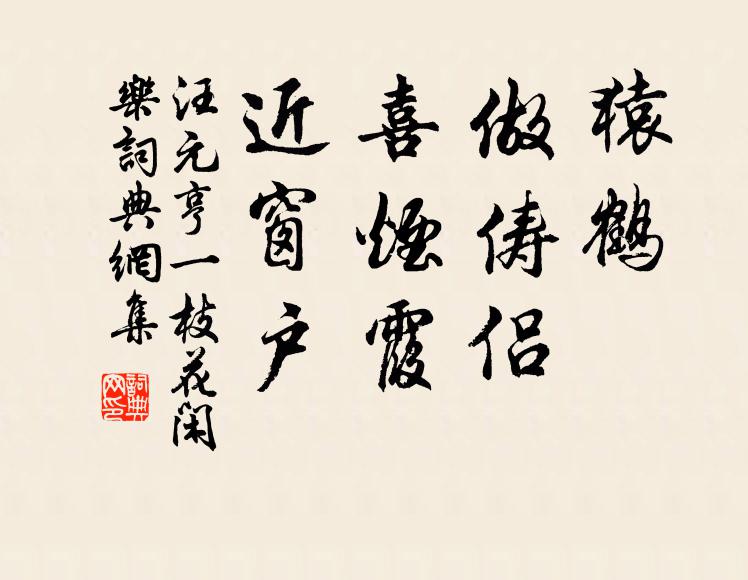 猿鶴
做儔侶
喜煙霞
近窗户
汪元亨一枝花閑
樂詞典網集
詞典网印